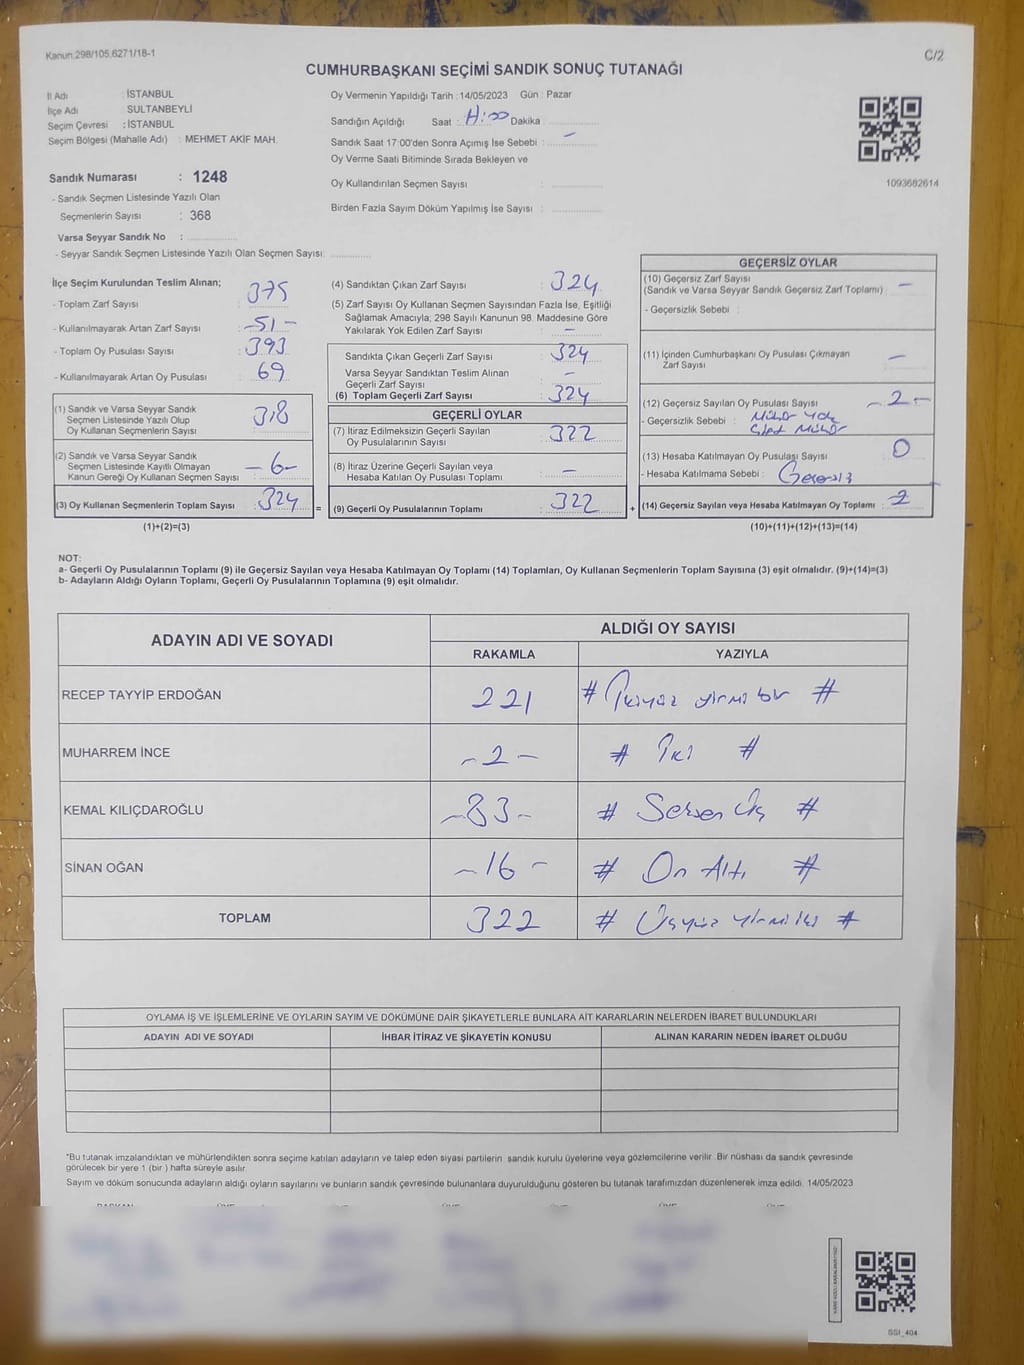 Kanun.298/105,6271/18-1
C/2
CUMHURBAŞKANI SEÇİMİ SANDIK SONUÇ TUTANAĞI
İl Adı : İSTANBUL
İlçe Adı : SULTANBEYLİ
Seçim Çevresi : İSTANBUL
Seçim Bölgesi (Mahalle Adı) : MEHMET AKİF MAH.
Sandık Numarası : 1248
- Sandık Seçmen Listesinde Yazılı Olan
Seçmenlerin Sayısı : 368
Varsa Seyyar Sandık No :
- Seyyar Sandık Seçmen Listesinde Yazılı Olan Seçmen Sayısı:
Oy Vermenin Yapıldığı Tarih :14/05/2023 Gün : Pazar
Sandığın Açıldığı Saat : Dakika :
Sandık Saat 17:00'den Sonra Açımış İse Sebebi : –
Oy Verme Saati Bitiminde Sırada Bekleyen ve
Oy Kullandırılan Seçmen Sayısı :
Birden Fazla Sayım Döküm Yapılmış İse Sayısı :
1093682614
İlçe Seçim Kurulundan Teslim Alınan;
- Toplam Zarf Sayısı : 375
- Kullanılmayarak Artan Zarf Sayısı : -51-
- Toplam Oy Pusulası Sayısı : 393
- Kullanılmayarak Artan Oy Pusulası : 69
(1) Sandık ve Varsa Seyyar Sandık
Seçmen Listesinde Yazılı Olup
Oy Kullanan Seçmenlerin Sayısı : 318
(2) Sandık ve Varsa Seyyar Sandık
Seçmen Listesinde Kayıtlı Olmayan
Kanun Gereği Oy Kullanan Seçmen Sayısı : -6-
(3) Oy Kullanan Seçmenlerin Toplam Sayısı : 324 =
(1)+(2)=(3)
(4) Sandıktan Çıkan Zarf Sayısı : 324
(5) Zarf Sayısı Oy Kullanan Seçmen Sayısından Fazla İse, Eşitliği
Sağlamak Amacıyla; 298 Sayılı Kanunun 98. Maddesine Göre
Yakılarak Yok Edilen Zarf Sayısı : –
Sandıkta Çıkan Geçerli Zarf Sayısı : 324
Varsa Seyyar Sandıktan Teslim Alınan
Geçerli Zarf Sayısı : –
(6) Toplam Geçerli Zarf Sayısı : 324
GEÇERLİ OYLAR
(7) İtiraz Edilmeksizin Geçerli Sayılan
Oy Pusulalarının Sayısı : 322
(8) İtiraz Üzerine Geçerli Sayılan veya
Hesaba Katılan Oy Pusulası Toplamı : –
(9) Geçerli Oy Pusulalarının Toplamı : 322 +
GEÇERSİZ OYLAR
(10) Geçersiz Zarf Sayısı : –
(Sandık ve Varsa Seyyar Sandık Geçersiz Zarf Toplamı)
- Geçersizlik Sebebi :
(11) İçinden Cumhurbaşkanı Oy Pusulası Çıkmayan
Zarf Sayısı : –
(12) Geçersiz Sayılan Oy Pusulası Sayısı : -2-
- Geçersizlik Sebebi : Mühür yok
Mühür
(13) Hesaba Katılmayan Oy Pusulası Sayısı : 0
- Hesaba Katılmama Sebebi : Geçersiz
(14) Geçersiz Sayılan veya Hesaba Katılmayan Oy Toplamı : 2
(10)+(11)+(12)+(13)=(14)
NOT:
a- Geçerli Oy Pusulalarının Toplamı (9) ile Geçersiz Sayılan veya Hesaba Katılmayan Oy Toplamı (14) Toplamları, Oy Kullanan Seçmenlerin Toplam Sayısına (3) eşit olmalıdır. (9)+(14)=(3)
b- Adayların Aldığı Oyların Toplamı, Geçerli Oy Pusulalarının Toplamına (9) eşit olmalıdır.
ADAYIN ADI VE SOYADI ALDIĞI OY SAYISI
RAKAMLA YAZIYLA
RECEP TAYYİP ERDOĞAN 221 # İkiyüz yirmi bir #
MUHARREM İNCE -2- # İki #
KEMAL KILIÇDAROĞLU -83- # Seksen Üç #
SİNAN OĞAN -16- # On Altı #
TOPLAM 322 # Üçyüz yirmi iki #
OYLAMA İŞ VE İŞLEMLERİNE VE OYLARIN SAYIM VE DÖKÜMÜNE DAİR ŞİKAYETLERLE BUNLARA AİT KARARLARIN NELERDEN İBARET BULUNDUKLARI
ADAYIN ADI VE SOYADI İHBAR İTİRAZ VE ŞİKAYETİN KONUSU ALINAN KARARIN NEDEN İBARET OLDUĞU
*Bu tutanak imzalandıktan ve mühürlendikten sonra seçime katılan adayların ve talep eden siyasi partilerin sandık kurulu üyelerine veya gözlemcilerine verilir. Bir nüshası da sandık çevresinde
görülecek bir yere 1 (bir ) hafta süreyle asılır.
Sayım ve döküm sonucunda adayların aldığı oyların sayılarını ve bunların sandık çevresinde bulunanlara duyurulduğunu gösteren bu tutanak tarafımızdan düzenlenerek imza edildi. 14/05/2023
SSI_404